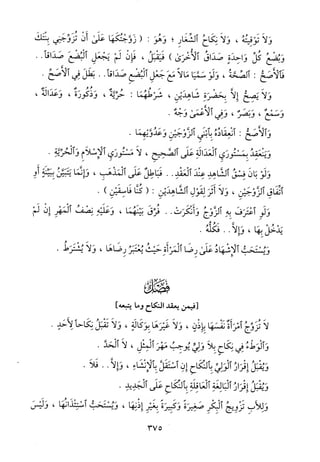 وَلَا تَوْقِيتُهُ ، وَلَا نِكَاحُ ٱلشِّغَارِ ؛ وَهُوَ : ( زَوَّجْتُكَهَا عَلَىٰ أَنْ تُزَوِّجَنِي بِنْتَكَ
وَبُضْعُ كُلِّ وَاحِدَةٍ صَدَاقُ ٱلْأُخْرَىٰ ) فَيَقْبَلُ ، فَإِنْ لَمْ يَجْعَلِ ٱلْبُضْعَ صَدَاقاً . .
فَٱلْأَصَحُّ : ٱلصِّحَّةُ ، وَلَوْ سَمَّيَا مَالاً مَعَ جَعْلِ ٱلْبُضْعِ صَدَاقاً . . بَطَلَ فِي ٱلْأَصَحِّ .
وَلَا يَصِحُّ إِلَّا بِحَضْرَةِ شَاهِدَيْنِ ، شَرْطُهُمَا : حُرِّيَّةٌ ، وَذُكُورَةٌ ، وَعَدَالَةٌ ،
وَسَمْعٌ ، وَبَصَرٌ ، وَفِي ٱلْأَعْمَىٰ وَجْهٌ .
وَٱلْأَصَحُّ : ٱنْعِقَادُهُ بِٱبْنَيِ ٱلزَّوْجَيْنِ وَعَدُوَّيْهِمَا .
وَيَنْعَقِدُ بِمَسْتُورَيِ ٱلْعَدَالَةِ عَلَى ٱلصَّحِيحِ ، لَا مَسْتُورَيِ ٱلْإِسْلَامِ وَٱلْحُرِّيَّةِ .
وَلَوْ بَانَ فِسْقُ ٱلشَّاهِدِ عِنْدَ ٱلْعَقْدِ . . فَبَاطِلٌ عَلَى ٱلْمَذْهَبِ ، وَإِنَّمَا يَتَبَيَّنُ بِبَيِّنَةٍ أَوِ
ٱتِّفَاقِ ٱلزَّوْجَيْنِ ، وَلَا أَثَرَ لِقَوْلِ ٱلشَّاهِدَيْنِ : ( كُنَّا فَاسِقَيْنِ ) .
وَلَوِ ٱعْتَرَفَ بِهِ ٱلزَّوْجُ وَأَنْكَرَتْ . . فُرِّقَ بَيْنَهُمَا ، وَعَلَيْهِ نِصْفُ ٱلْمَهْرِ إِنْ لَمْ
يَدْخُلْ بِهَا ، وَإِلَّا . . فَكُلُّهُ .
وَيُسْتَحَبُّ ٱلْإِشْهَادُ عَلَىٰ رِضَا ٱلْمَرْأَةِ حَيْثُ يُعْتَبَرُ رِضَاهَا ، وَلَا يُشْتَرَطُ .
فَصْلٌ
[فيمن يعقد النكاح وما يتبعه]
لَا تُزَوِّجُ ٱمْرَأَةٌ نَفْسَهَا بِإِذْنٍ ، وَلَا غَيْرَهَا بِوَكَالَةٍ ، وَلَا تَقْبَلُ نِكَاحاً لِأَحَدٍ .
وَٱلْوَطْءُ فِي نِكَاحٍ بِلَا وَلِيٍّ يُوجِبُ مَهْرَ ٱلْمِثْلِ ، لَا ٱلْحَدَّ .
وَيُقْبَلُ إِقْرَارُ ٱلْوَلِيِّ بِٱلنِّكَاحِ إِنِ ٱسْتَقَلَّ بِٱلْإِنْشَاءِ ، وَإِلَّا . . فَلَا .
وَيُقْبَلُ إِقْرَارُ ٱلْبَالِغَةِ ٱلْعَاقِلَةِ بِٱلنِّكَاحِ عَلَى ٱلْجَدِيدِ .
وَلِلْأَبِ تَزْوِيجُ ٱلْبِكْرِ صَغِيرَةً وَكَبِيرَةً بِغَيْرِ إِذْنِهَا ، وَيُسْتَحَبُّ ٱسْتِئْذَانُهَا ، وَلَيْسَ
٣٧٥